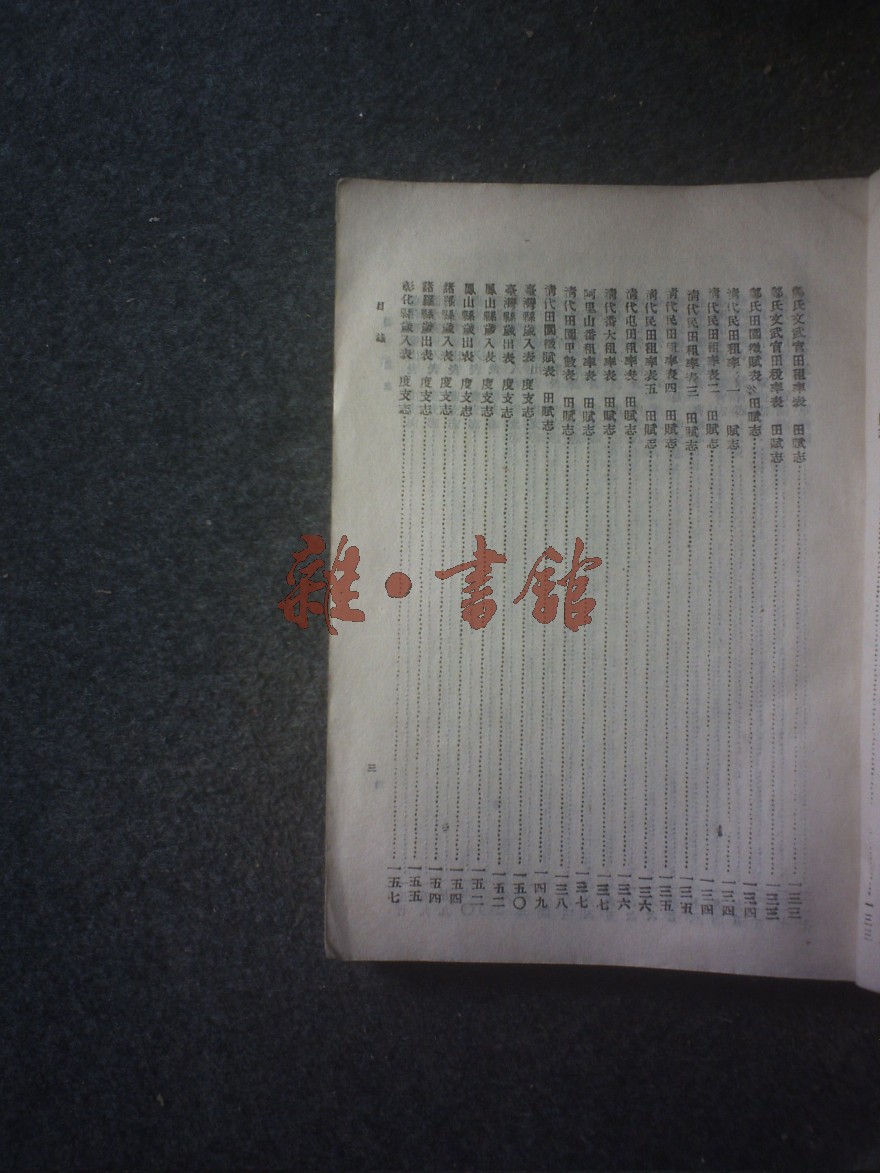 鄭氏文武官田租率表 田賦志 一三三
鄭氏文武官田稅率表 田賦志 一三三
鄭氏田園徵賦表 田賦志 一三四
清代民田租率 一 賦志 一三四
清代民田租率表二 田賦志 一三四
清代民田租率表三 田賦志 一三五
清代民田租率表四 田賦志 一三五
清代民田租率表五 田賦志 一三六
清代屯田租率表 田賦志 一三六
清代番大租率表 田賦志 一三七
阿里山番租率表 田賦志 一三七
清代田園甲數表 田賦志 一三八
清代田園徵賦表 田賦志 一四九
臺灣縣歲入表 度支志 一五〇
臺灣縣歲出表 度支志 一五二
鳳山縣歲入表 度支志 一五二
鳳山縣歲出表 度支志 一五四
諸羅縣歲入表 度支志 一五四
諸羅縣歲出表 度支志 一五五
彰化縣歲入表 度支志 一五七
目錄
三
雜·書館